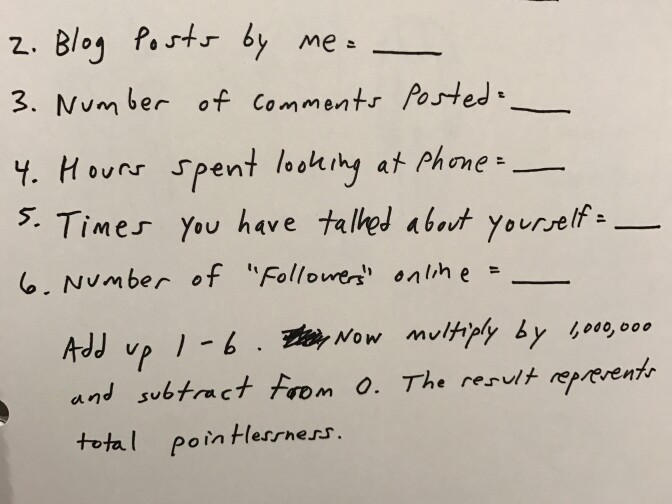 2. Blog Posts by me = ____
3. Number of comments Posted = ____
4. Hours spent looking at phone = ____
5. Times you have talked about yourself = ____
6. Number of "Followers" online = ____
Add up 1-6. Now multiply by 1,000,000
and subtract from 0. The result represents
total pointlessness.